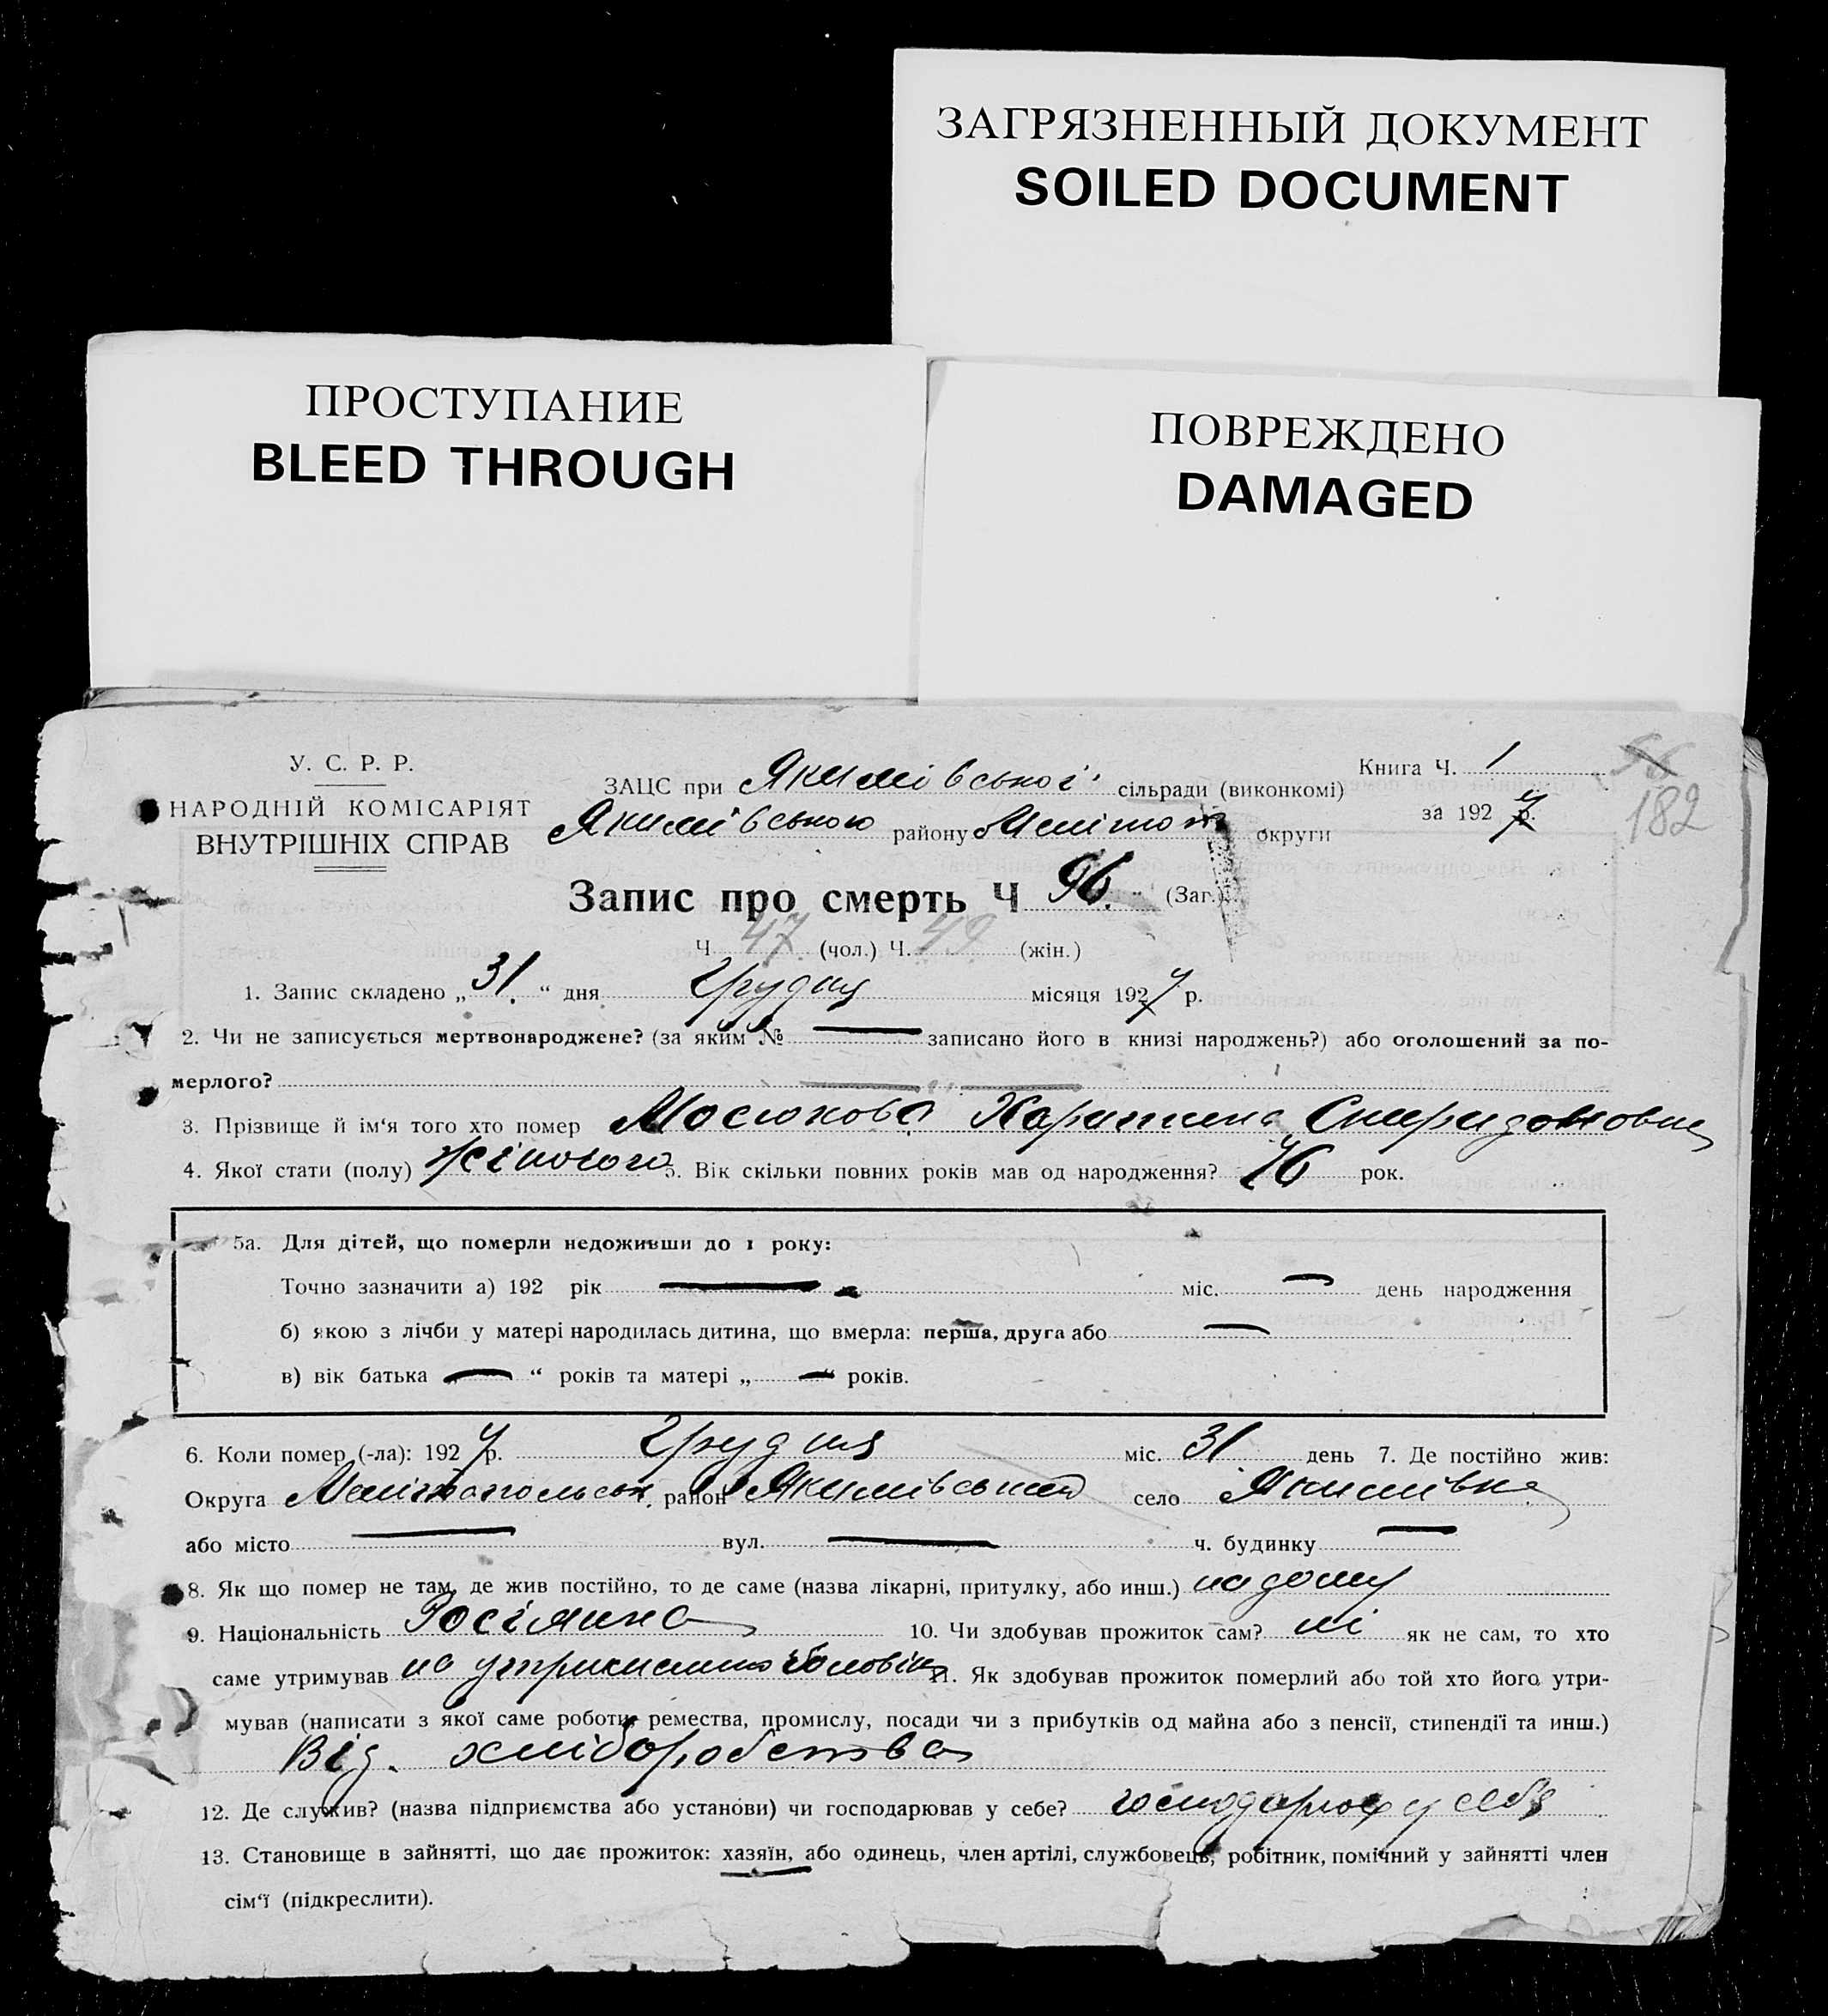 ЗАГРЯЗНЕННЫЙ ДОКУМЕНТ
SOILED DOCUMENT
ПРОСТУПАНИЕ
BLEED THROUGH
ПОВРЕЖДЕНО
DAMAGED
У. С. Р. Р.
НАРОДНІЙ КОМІСАРІЯТ
ВНУТРІШНІХ СПРАВ
ЗАЦС при Якимівської сільради (виконкомі)
Якимівського району Меліт округи
Книга Ч. 1
за 1927 р.
56
182
Запис про смерть Ч 96. (Заг.)
Ч 47 (чол.) Ч. 49 (жін.)
1. Запис складено „31." дня Грудня місяця 1927 р.
2. Чи не записується мертвонароджене? (за яким № — записано його в книзі народжень?) або оголошений за по-
мерлого? — „ —
3. Прізвище й ім'я того хто помер Мосюкова Харитина Спиридоновна
4. Якої стати (полу) жіночого 5. Вік скільки повних років мав од народження? 76 рок.
5а. Для дітей, що померли недоживши до 1 року:
Точно зазначити а) 192 рік — міс. — день народження
б) якою з лічби у матері народилась дитина, що вмерла: перша, друга або —
в) вік батька „—" років та матері „—" років.
6. Коли помер (-ла): 1927 р. Грудня міс. 31 день 7. Де постійно жив:
Округа Мелітопольськ. район Якимівський село Якимівка
або місто — вул. — ч. будинку —
8. Як що помер не там, де жив постійно, то де саме (назва лікарні, притулку, або инш.) на дому
9. Національність Росіянка 10. Чи здобував прожиток сам? ні як не сам, то хто
саме утримував на утриманні чоловіка 11. Як здобував прожиток померлий або той хто його утри-
мував (написати з якої саме роботи, ремества, промислу, посади чи з прибутків од майна або з пенсії, стипендії та инш.)
Від. хліборобства
12. Де служив? (назва підприємства або установи) чи господарював у себе? господарює у себе
13. Становище в зайнятті, що дає прожиток: хазяїн, або одинець, член артілі, службовець, робітник, помічний у зайнятті член
сім'ї (підкреслити).